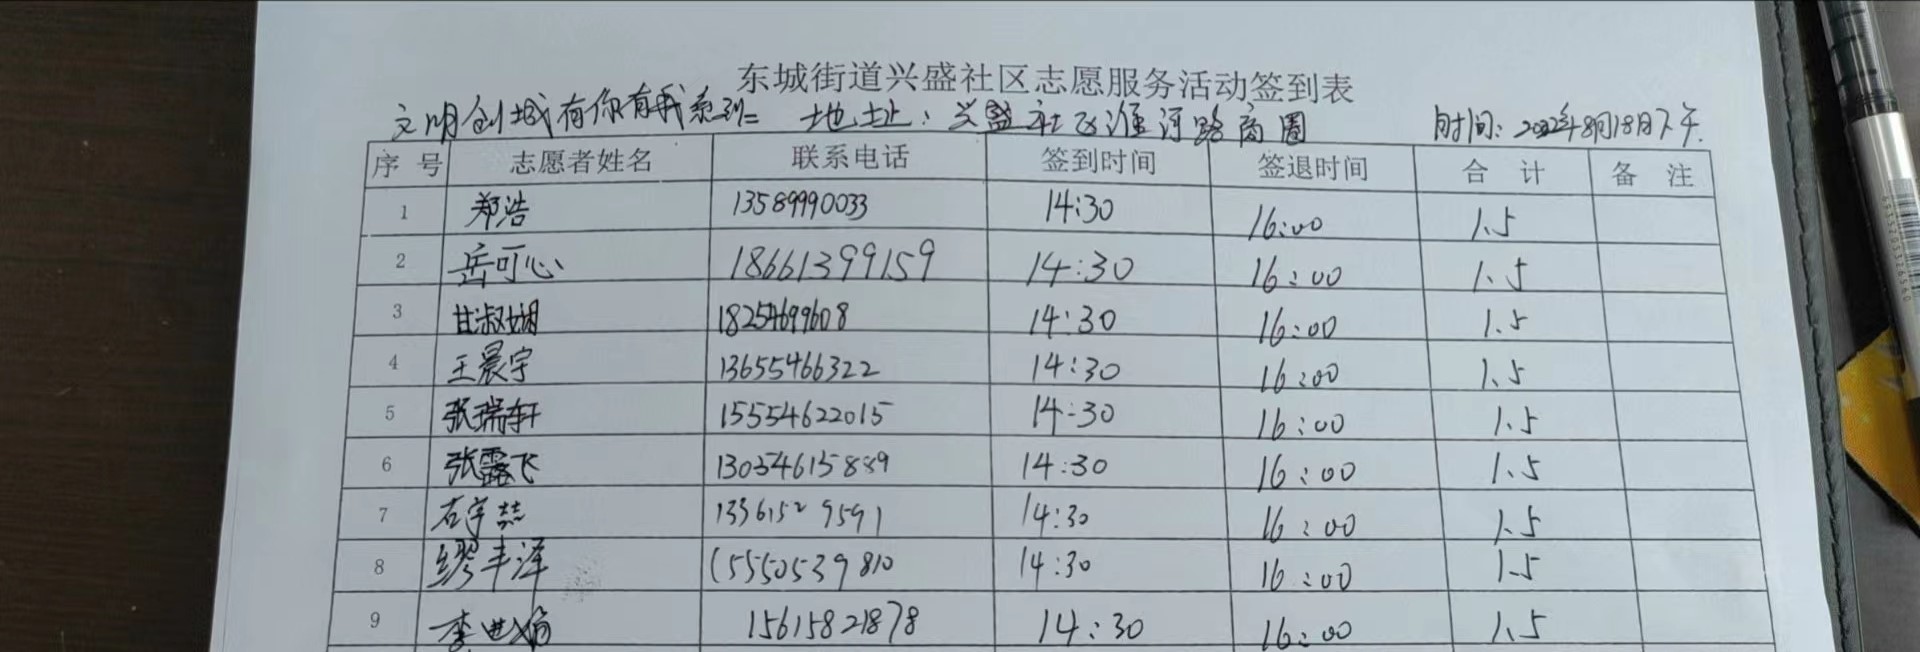 东城街道兴盛社区志愿服务活动签到表
文明创城有你有我系列二 地址：兴盛社区淮河路商圈 时间：2022年8月18日下午.
序号 志愿者姓名 联系电话 签到时间 签退时间 合计 备注
1 郑浩 13589990033 14:30 16:00 1.5
2 岳可心 18661399159 14:30 16:00 1.5
3 甘淑娴 18254699608 14:30 16:00 1.5
4 王晨宇 13655466322 14:30 16:00 1.5
5 张瑞轩 15554622015 14:30 16:00 1.5
6 张露飞 13054615889 14:30 16:00 1.5
7 石宇喆 13361529591 14:30 16:00 1.5
8 缪丰泽 15550539810 14:30 16:00 1.5
9 李 15615821878 14:30 16:00 1.5